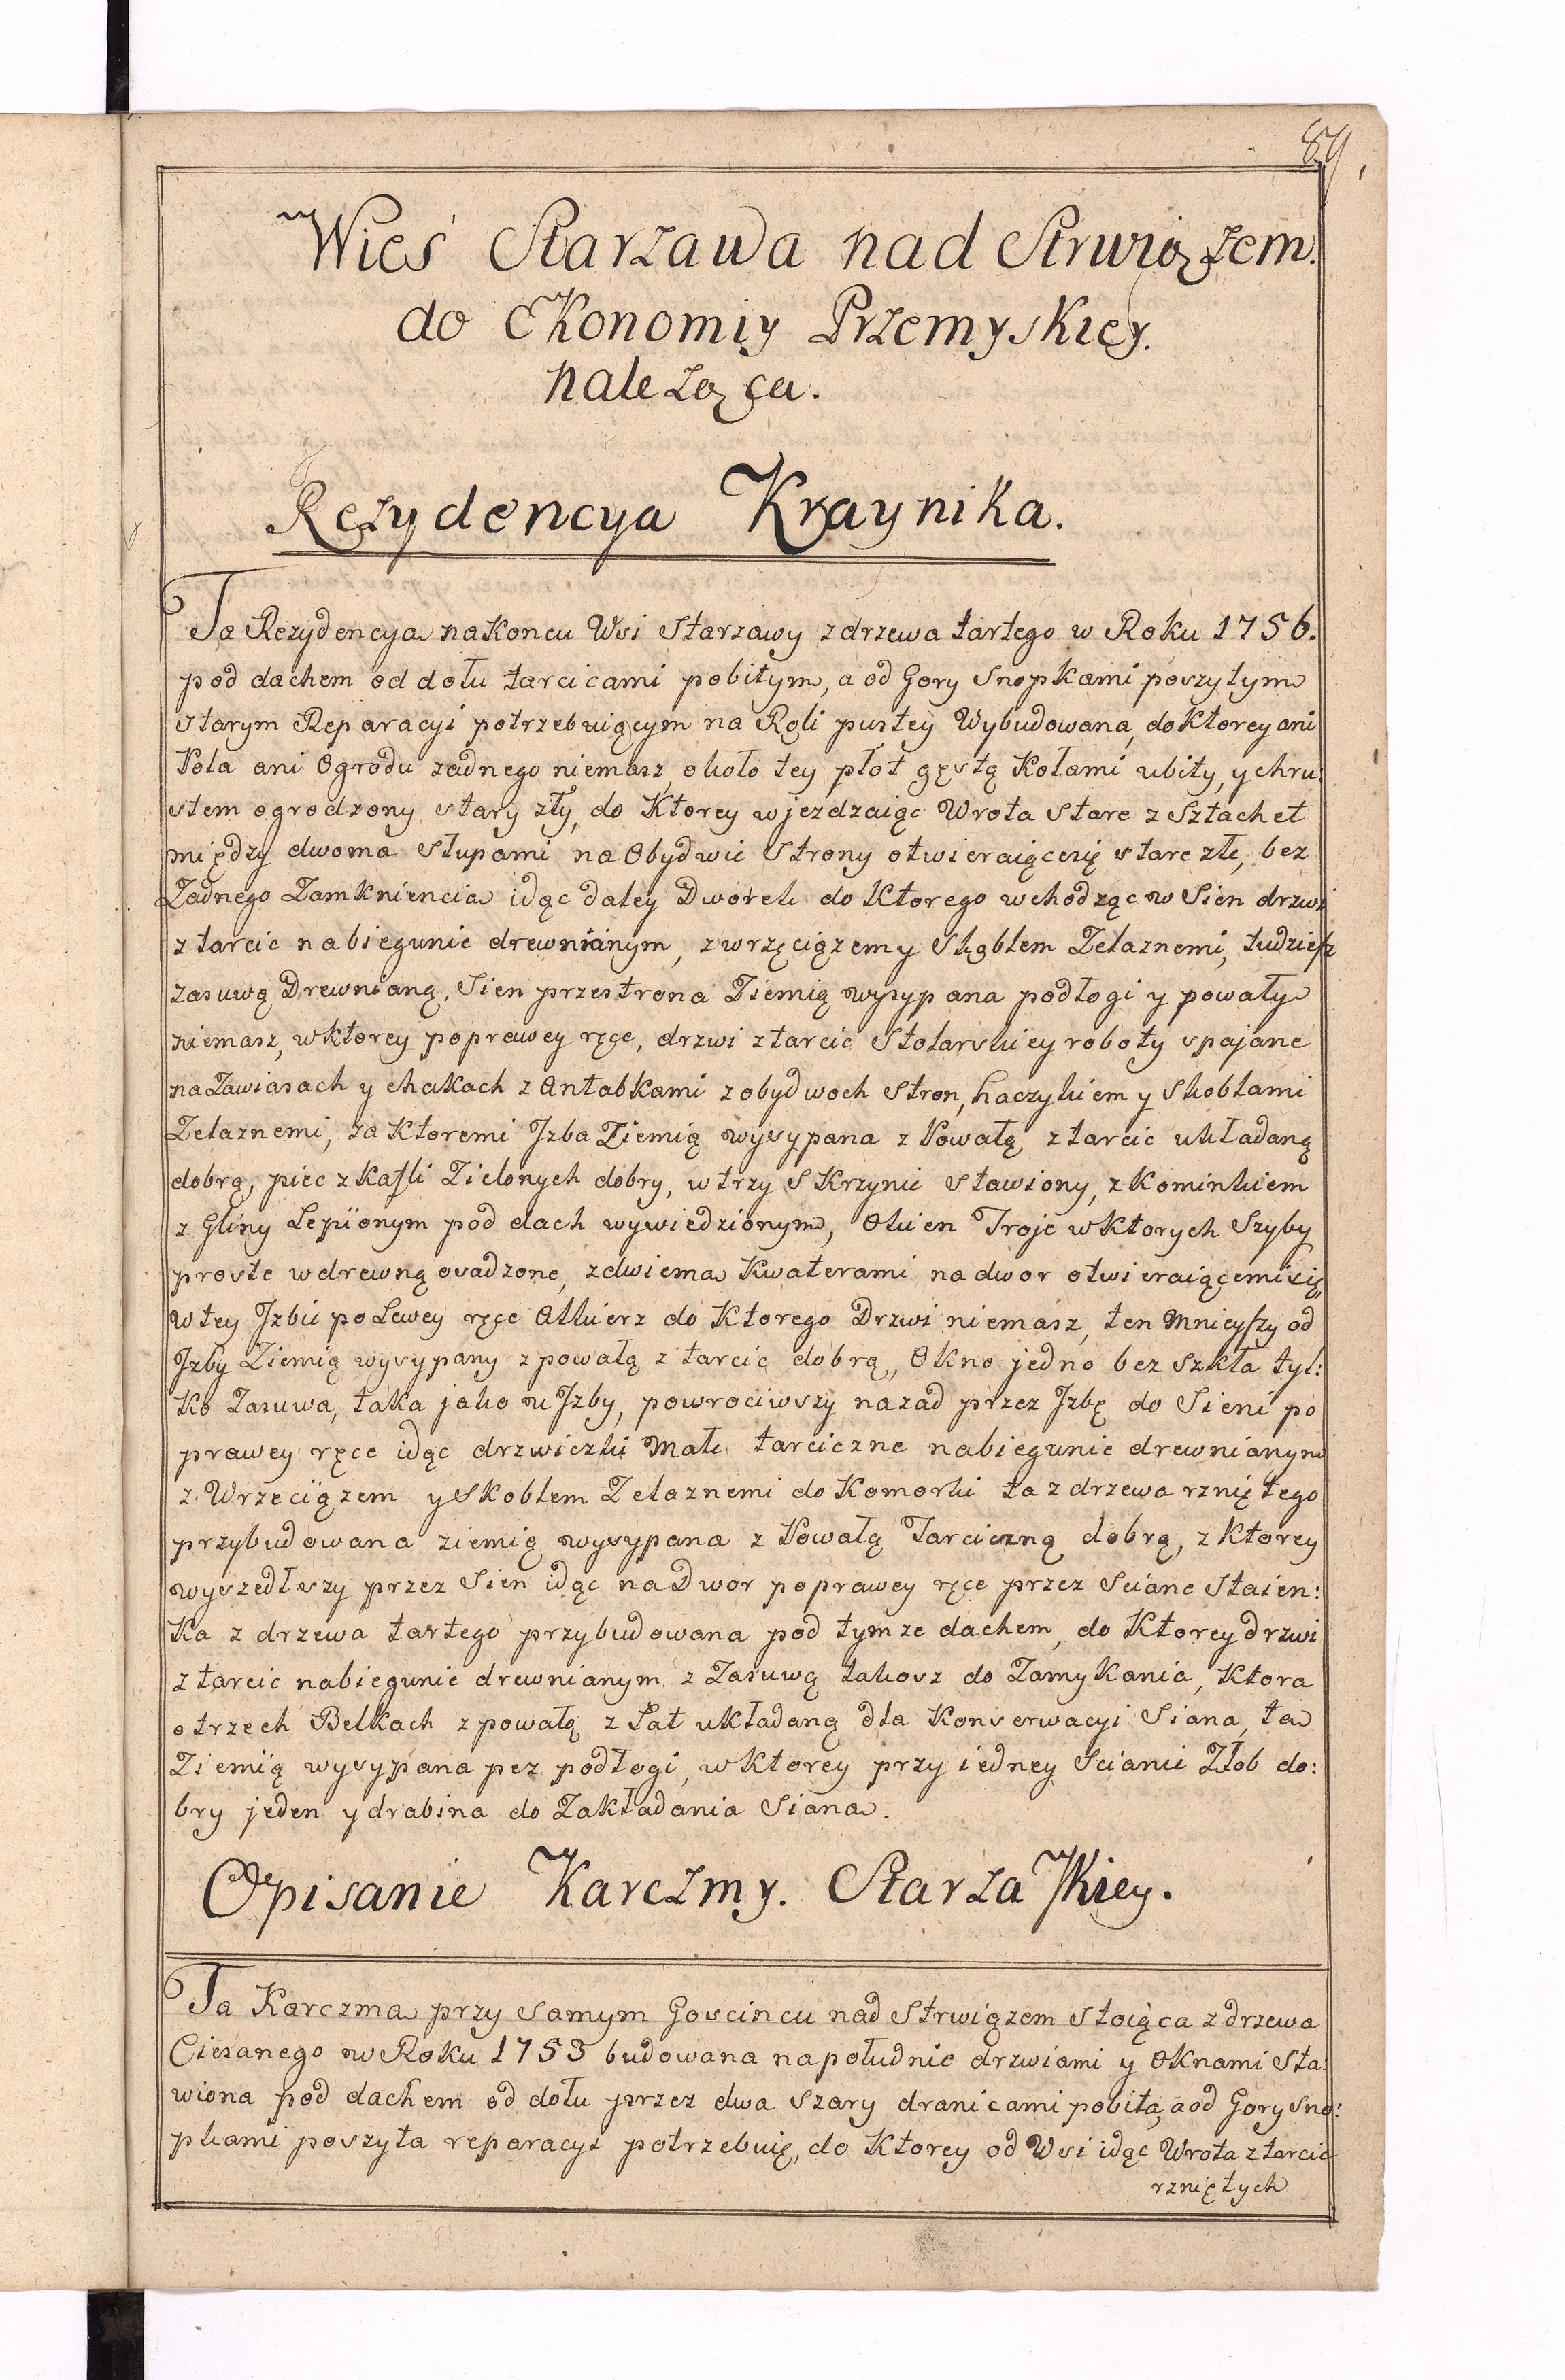 89.
Wieś Starzawa nad Strwiązem.
do Ekonomiy Przemyskiey.
należąca.
Rezydencya Kraynika.
Ta Rezydencya na Koncu Wsi Starzawy z drzewa tartego w Roku 1756.
pod dachem od dołu tarcicami pobitym, a od Gory Snopkami poszytym
starym Reparacyi potrzebuiącym na Roli pustey Wybudowana, do Ktorey ani
Pola ani Ogrodu zadnego niemasz, około tey płot gęstą Kołami ubity, y chru:
stem ogrodzony stary zły, do Ktorey wjezdzaiąc Wrota stare z Sztachet
między dwoma Słupami na Obydwie Strony otwieraiącesię stare złe, bez
Zadnego Zamkniencia idąc daley Dworek do Ktorego wchodząc w Sien drzwi
z tarcic na biegunie drewnianym, z wrzęciązem y Skoblem Zelaznemi, tudziesz
zasuwą Drewnianą, Sien przestrona Ziemią wysypana podłogi y powały
niemasz, w ktorey po prawey ręce, drzwi z tarcic Stolarskiey roboty spajane
na Zawiasach y chakach z Antabkami z obydwoch Stron, haczykiem y Skoblami
Zelaznemi, za Ktoremi Jzba Ziemią wysypana z Powałą z tarcic układaną
dobrą, piec z Kafli Zielonych dobry, w trzy Skrzynie Stawiony, z Kominkiem
z Gliny Lepionym pod dach wywiedzionym, Okien Troje w ktorych Szyby
proste w drewną osadzone, z dwiema Kwaterami na dwor otwieraiącemisię,
W tey Jzbie po Lewey ręce Alkierz do Ktorego Drzwi niemasz, ten Mnieyszy od
Jzby Ziemią wysypany z powałą z tarcic dobrą, Okno jedno bez Szkła tyl:
ko Zasuwa, taka jako w Jzby, powrociwszy nazad przez Jzbę do Sieni po
prawey ręce idąc drzwiczki Małe tarciczne na biegunie drewnianym
z Wrzeciązem y Skoblem Zelaznemi do Komorki ta z drzewa rzniętego
przybudowana ziemią wysypana z Powałą Tarciczną dobrą, z Ktorey
wyszedłszy przez Sien idąc na Dwor po prawey ręce przez Sciane Staien:
Ka z drzewa tartego przybudowana pod tymze dachem, do Ktorey drzwi
z tarcic na biegunie drewnianym z Zasuwą takosz do Zamykania, Ktora
o trzech Belkach z powałą z Łat układaną dla Konserwacyi Siana, ta
Ziemią wysypana pez podłogi, w Ktorey przy iedney Scianie Złob do:
bry jeden y drabina do Zakładania Siana.
Opisanie Karczmy. Starzaskiey.
Ta Karczma przy samym Goscincu nad Strwiązem Stoiąca z drzewa
Ciesanego w Roku 1753 budowana na południe drzwiami y Oknami Sta:
wiona pod dachem od dołu przez dwa Szary dranicami pobita, a od Gory Sno:
pkami poszyta reparacyi potrzebuię, do Ktorey od Wsi idąc Wrota z tarcic
rzniętych